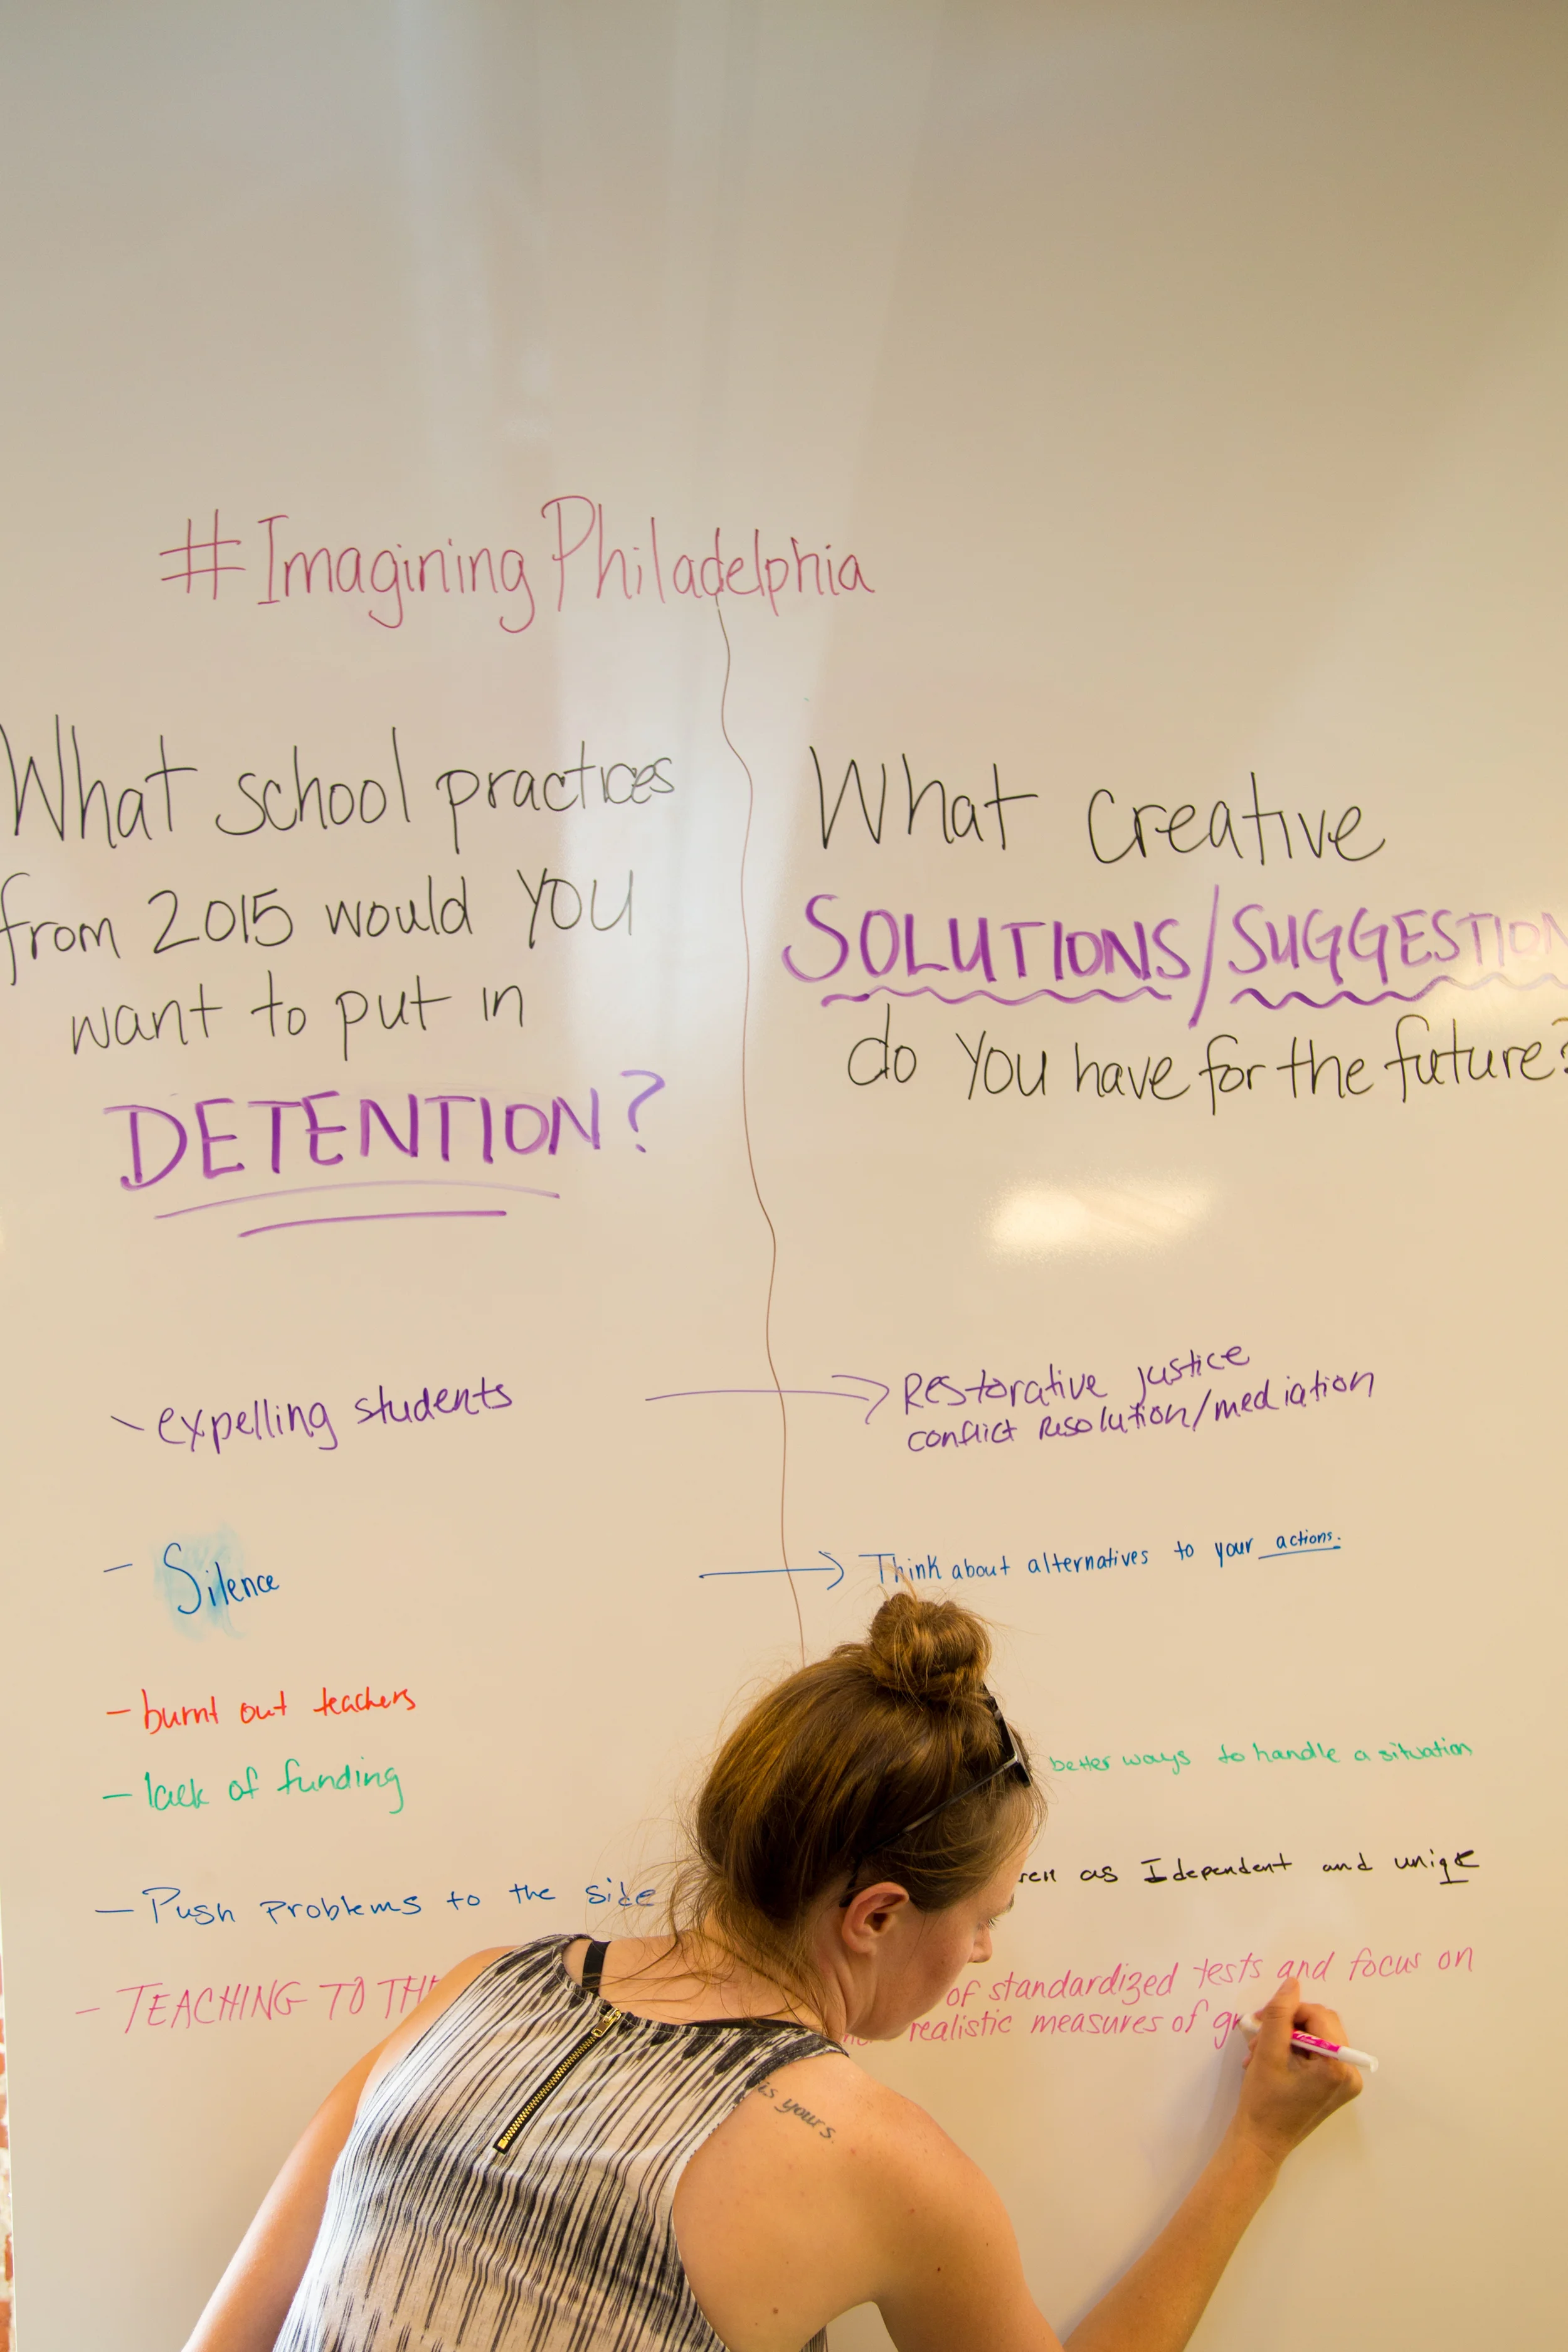 #ImaginingPhiladelphia
What school practices
from 2015 would you
want to put in
DETENTION?
- expelling students
- Silence
- burnt out teachers
- lack of funding
- Push problems to the side
- TEACHING TO
What creative
SOLUTIONS/SUGGESTION
do you have for the future?
Restorative justice
conflict resolution/mediation
Think about alternatives to your actions.
better ways to handle a situation
as Idependent and uniqe
of standardized tests and focus on
realistic measures of
is yours.